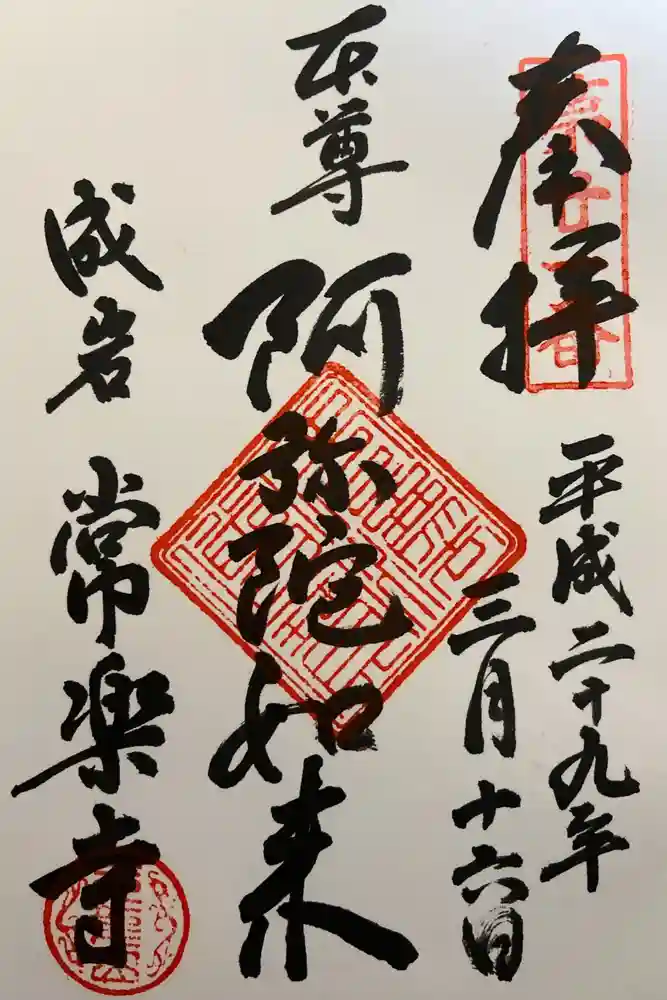 奉拝
第廿番
平成二十九年
三月十六日
本尊 阿弥陀如来
成岩 常楽寺